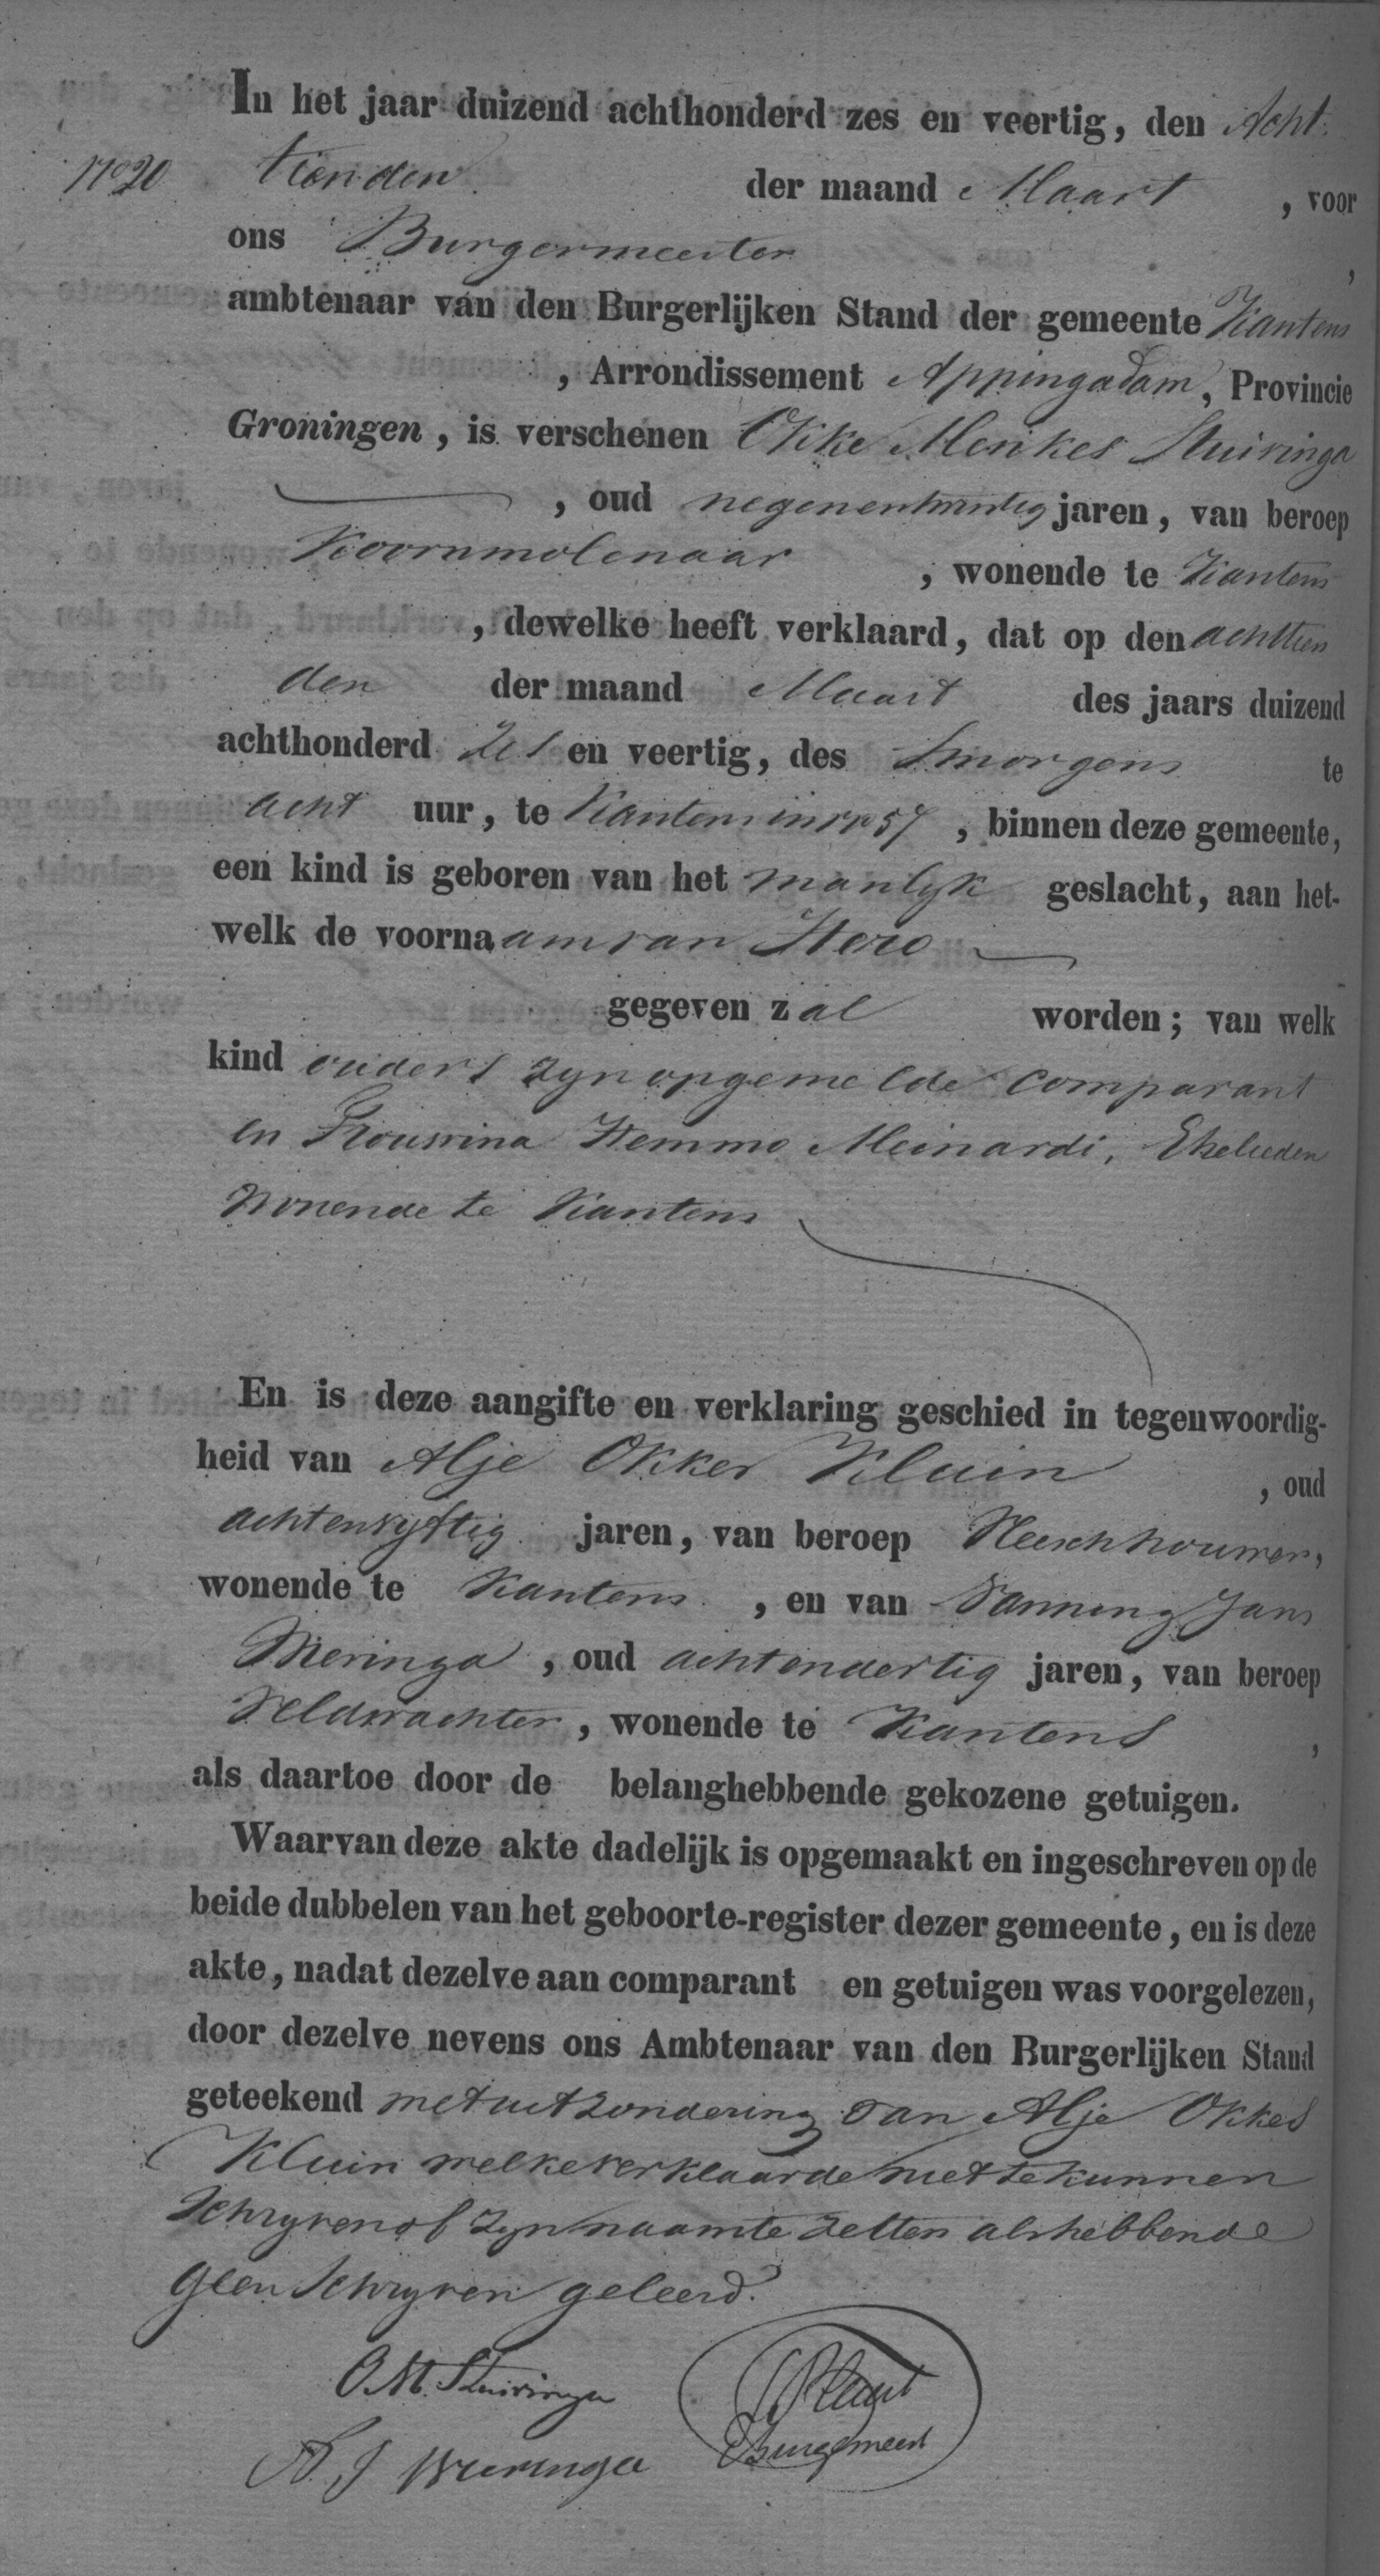 In het jaar duizend achthonderd zes en veertig, den Acht
No 20 tienden der maand Maart , voor
ons Burgermeester ,
ambtenaar van den Burgerlijken Stand der gemeente Kantens
, Arrondissement Appingadam, Provincie
Groningen, is verschenen Okke Menkes Stuivinga
, oud negenentwintig jaren, van beroep
Koornmolenaar , wonende te Kantens
, dewelke heeft verklaard, dat op den achttien
den der maand Maart des jaars duizend
achthonderd Zes en veertig, des smorgens te
acht uur, te Kantens in No 57 , binnen deze gemeente,
een kind is geboren van het manlyk geslacht, aan het-
welk de voornaam van Hero
gegeven zal worden; van welk
kind ouders zyn opgemelde comparant
en Hemmo Meinardi, Ehelieden
wonende te Kantens
En is deze aangifte en verklaring geschied in tegenwoordig-
heid van Alje Okkes Kluin , oud
achtenvyftig jaren, van beroep Vleeschhouwer,
wonende te Kantens , en van Nanning Jans
Wieringa , oud achtendertig jaren, van beroep
Veldwachter, wonende te Kantens ,
als daartoe door de belanghebbende gekozene getuigen.
Waarvan deze akte dadelijk is opgemaakt en ingeschreven op de
beide dubbelen van het geboorte-register dezer gemeente, en is deze
akte, nadat dezelve aan comparant en getuigen was voorgelezen,
door dezelve nevens ons Ambtenaar van den Burgerlijken Stand
geteekend met uitzondering van Alje Okkes
Kluin welke verklaarde niet te kunnen
Schryven of zyn naam te zetten als hebbende
geen Schryven geleerd.
O. M. Stuivinga
N. J Wieringa Burgemeest